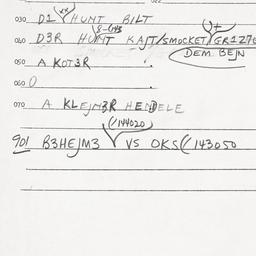 030 D1 HUNT BILT
8-643
040 D3R HUNT KAJT/SMOCKET/GR1Z7E
DEM BEJN
050 A KOT3R
060 O
070 A KLEJM3R HEDDELE
(/144020
901 B3HEJM3 VS OKS(/143050